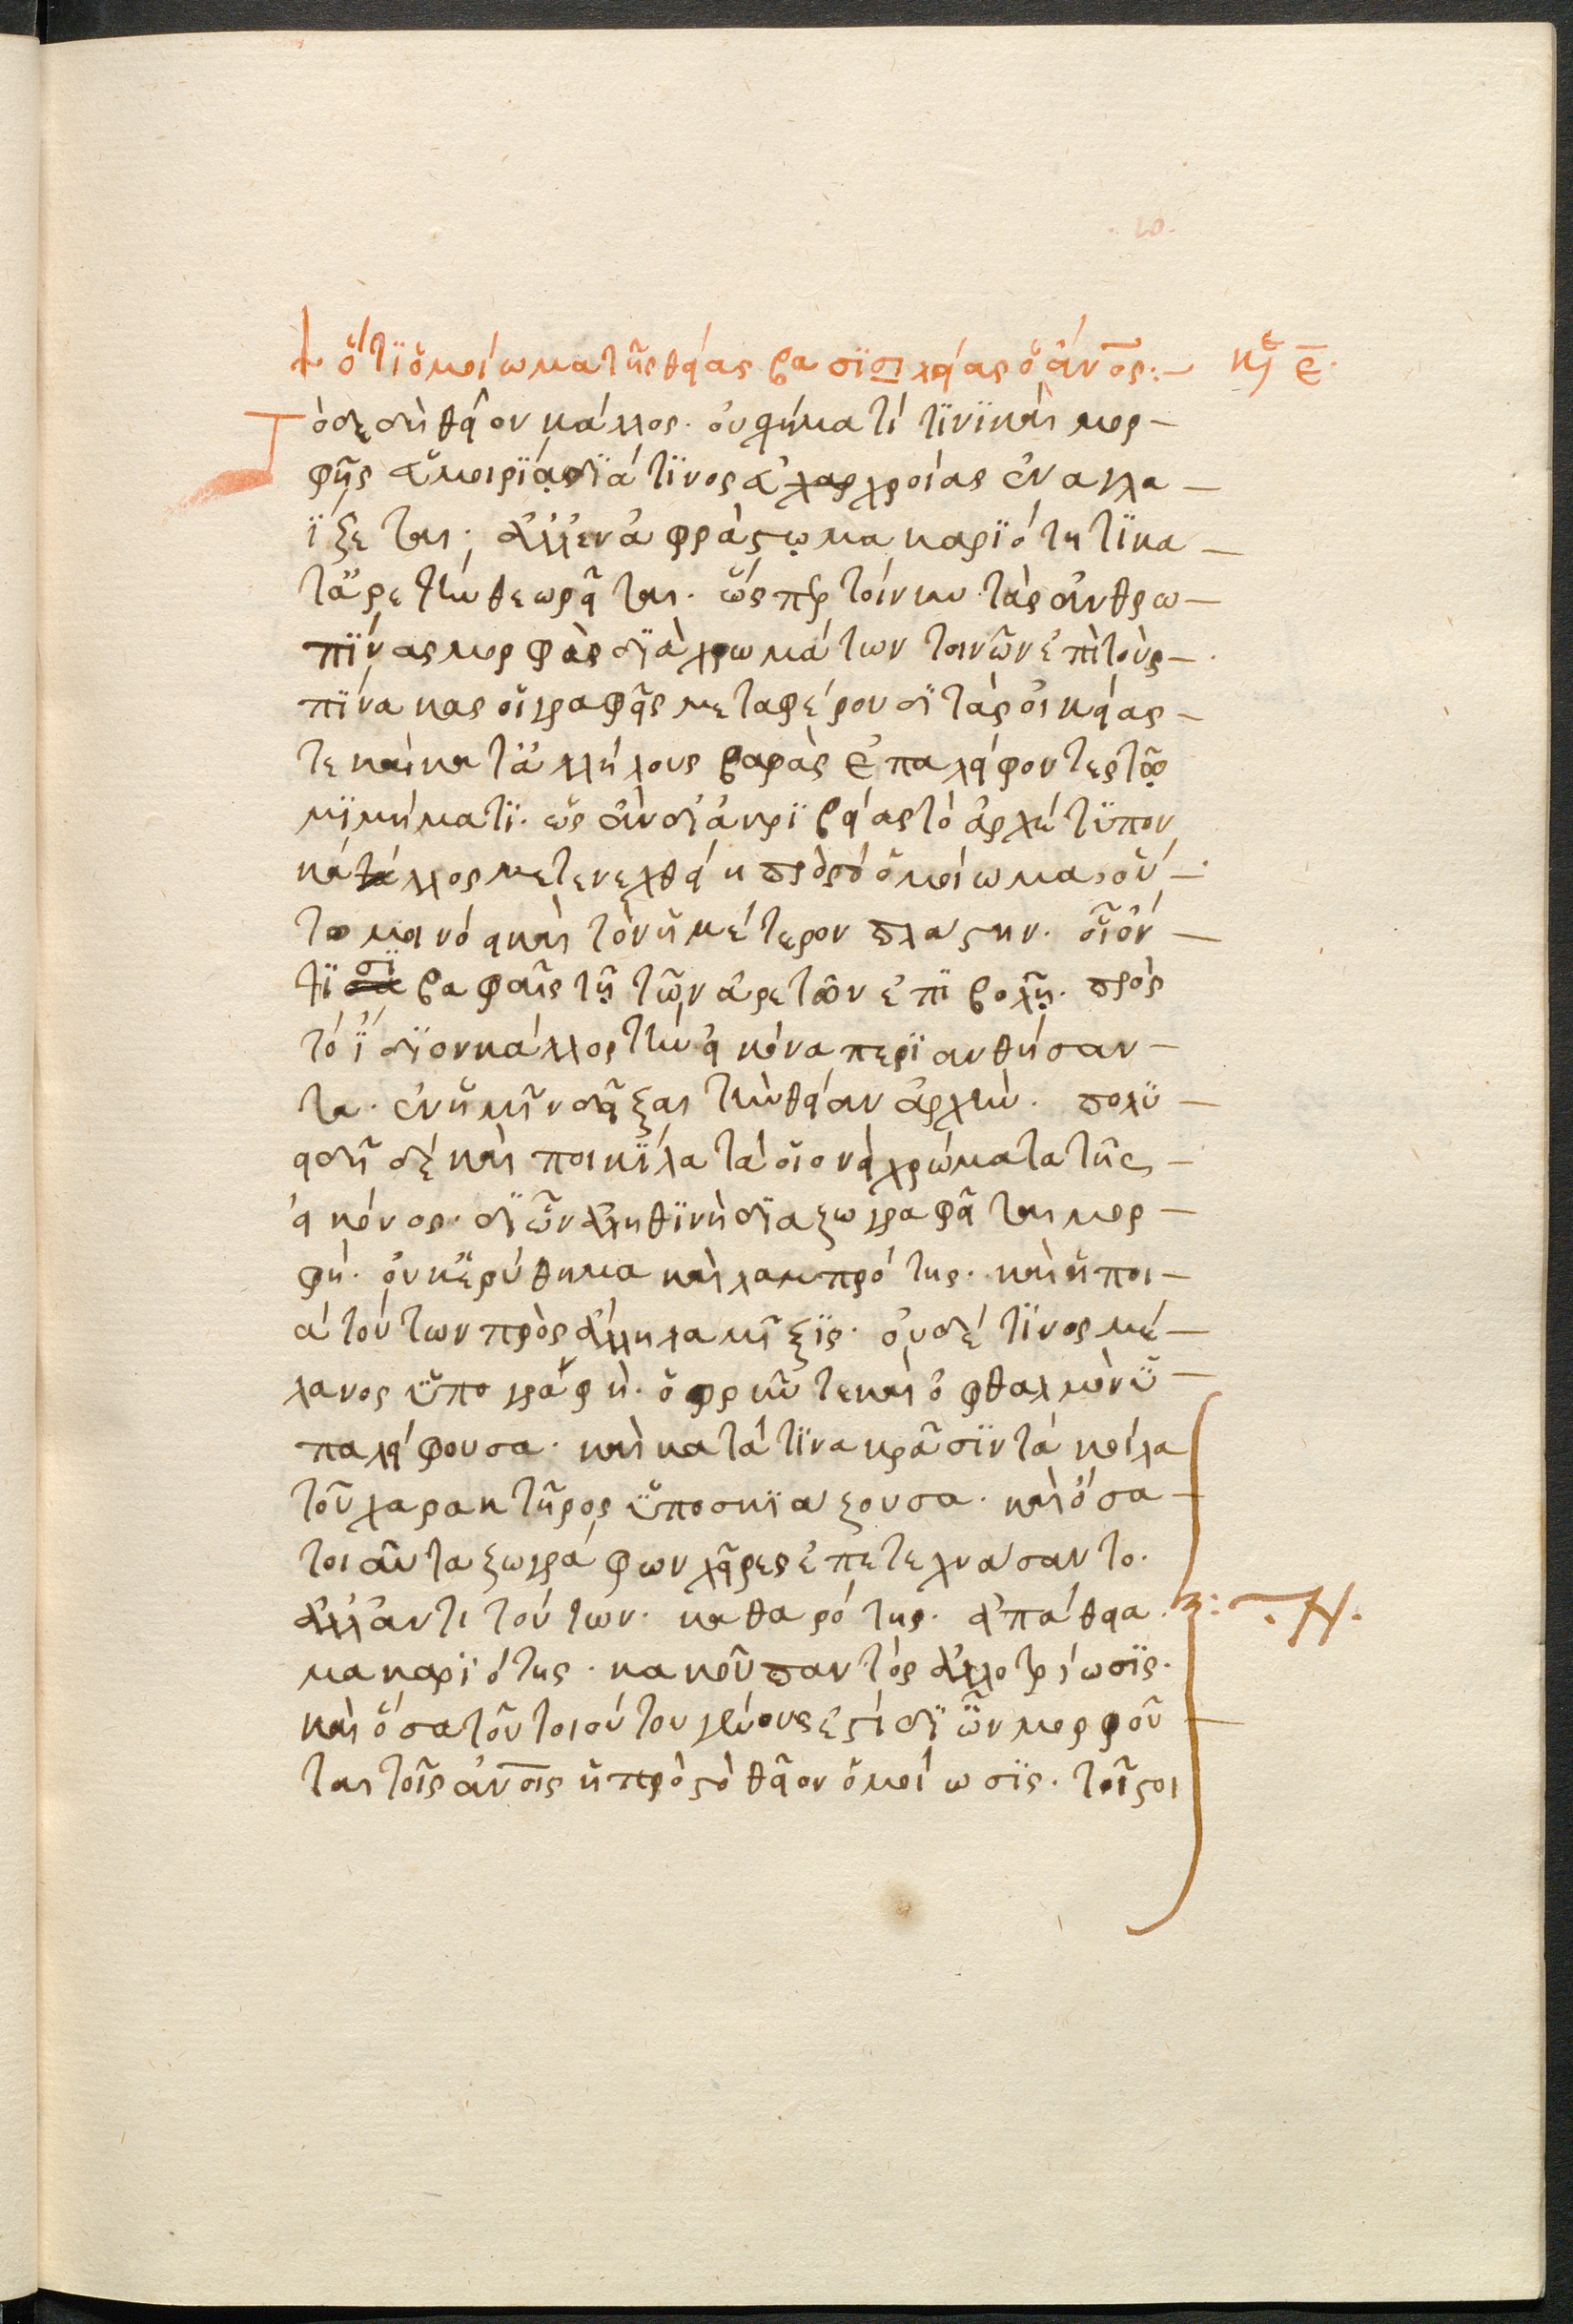 .ω.
† ὅτϊ ὁμοίωμα τῆς θείας βασϊσιλείας ὁ ἄν̅ος:— κεφ ε̅.
Τὸδε δὴ θεῖον κάλλος. οὐ σχήματί τϊνϊ καὶ μορ—
φῆς ἀμοιρϊα διά τϊνος ἐυχαρχροίας ἐναγλα—
ΐζεται· ἀλλ' ἐν ἀφράστω μακαρϊότητϊ κα—
τ' ἀρετὴν θεωρεῖται. ὥσπερ τοίνυν τὰς ἀνθρω—
πΐνας μορφὰς δϊὰ χρωμάτων τοινῶν ἐπὶ τοὺς—
πΐνακας οἱ γραφεῖς μεταφέρουσϊ τὰς οἰκείας—
τε καὶ κατ' ἀλλήλους βαφὰς ἐπαλείφοντες τῶ
μϊμήματϊ. ὡς ἂν δι' ἀκρϊβείας τὸ ἀρχέτϋπον
κάταλλος μετενεχθείη πρὸς τὸ ὁμοίωμα, οὕ—
τω μοι νόει καὶ τὸν ἡμέτερον πλαστην. οἷόν—
τϊσα σϊ βαφαῖς τῆ τῶν ἀρετῶν ἐπϊβολῆ. πρὸς
τὸ ΐδϊον κάλλος τὴν εἰκόνα περϊανθήσαν—
τα. ἐν ἡμῖν δεῖξαι τὴν θείαν ἀρχήν. πολϋ—
ειδῆ δὲ καὶ ποικΐλα τὰ οἱονεὶ χρώματα τῆς—
εἰκόνος. δϊ ὧν ἀληθϊνὴ δϊαζωγραφεῖται μορ—
φή. οὐκ ἐρύθημα καὶ λαμπρότης. καὶ ἡ ποι—
ὰ τούτων πρὸς ἄλληλα μῖξϊς. οὐδέ τϊνος μέ—
λανος ϋπογραφὴ. ὀφρῦν τε καὶ ὀφθαλμὸν ϋ—
παλείφουσα. καὶ κατά τϊνα κρᾶσϊν τὰ κοίλα
τοῦ χαρακτῆρος ϋποσκϊαζουσα. καὶ ὅσα—
τοιαῦτα ζωγράφων χεῖρες ἐπετεχνασαντο.
ἀλλ' ἀντι τούτων. καθαρότης. ἀπάθεια.
μακαρϊότης. κακοῦ παντὸς ἀλλοτρίωσϊς.
καὶ ὅσα τοῦ τοιούτου γένους ἐστὶ δϊ ὧν μορφοῦ—
ται τοῖς ἀν̅οις ἡ πρὸς τὸ θεῖον ὁμοίωσϊς. τοῖς οι